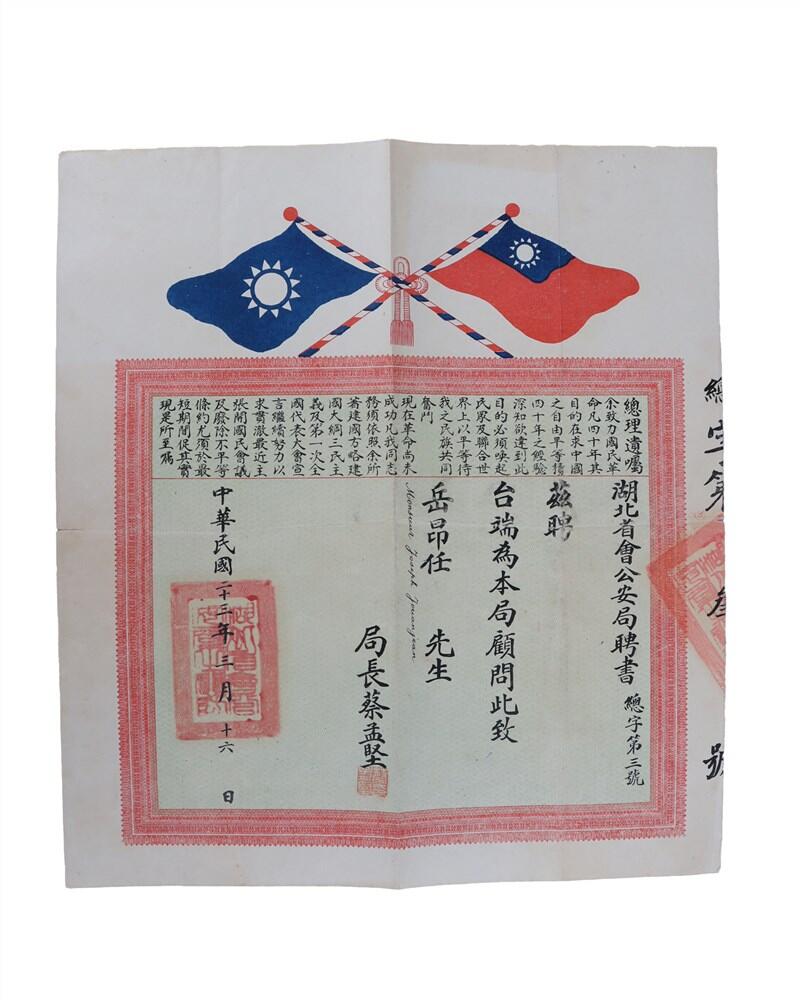 總理遺囑
余致力國民革
命凡四十年其
目的在求中國
之自由平等積
四十年之經驗
深知欲達到此
目的必須喚起
民眾及聯合世
界上以平等待
我之民族共同
奮鬥
現在革命尚未
成功凡我同志
務須依照余所
著建國方略建
國大綱三民主
義及第一次全
國代表大會宣
言繼續努力以
求貫澈最近主
張開國民會議
及廢除不平等
條約尤須於最
短期間促其實
現是所至囑
湖北省會公安局聘書 總字第三號
茲聘
台端為本局顧問此致
岳昂任 先生
Monsieur Joseph Jouangean
局長蔡孟堅
中華民國二十三年三月十六日
總字第叁號